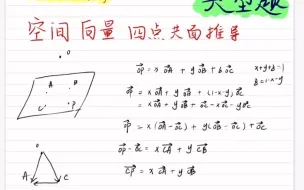 典型题
空间向量四点共面推导
O
A
B
C
P
A
C
OP = xOA + yOB + zOC
x+y+z=1
z=1-x-y
OP = xOA + yOB + (1-x-y)OC
= xOA + yOB + OC - xOC - yOC
OP = x(OA - OC) + y(OB - OC) + OC
OP - OC = xCA + yCB
CP = xCA + yCB